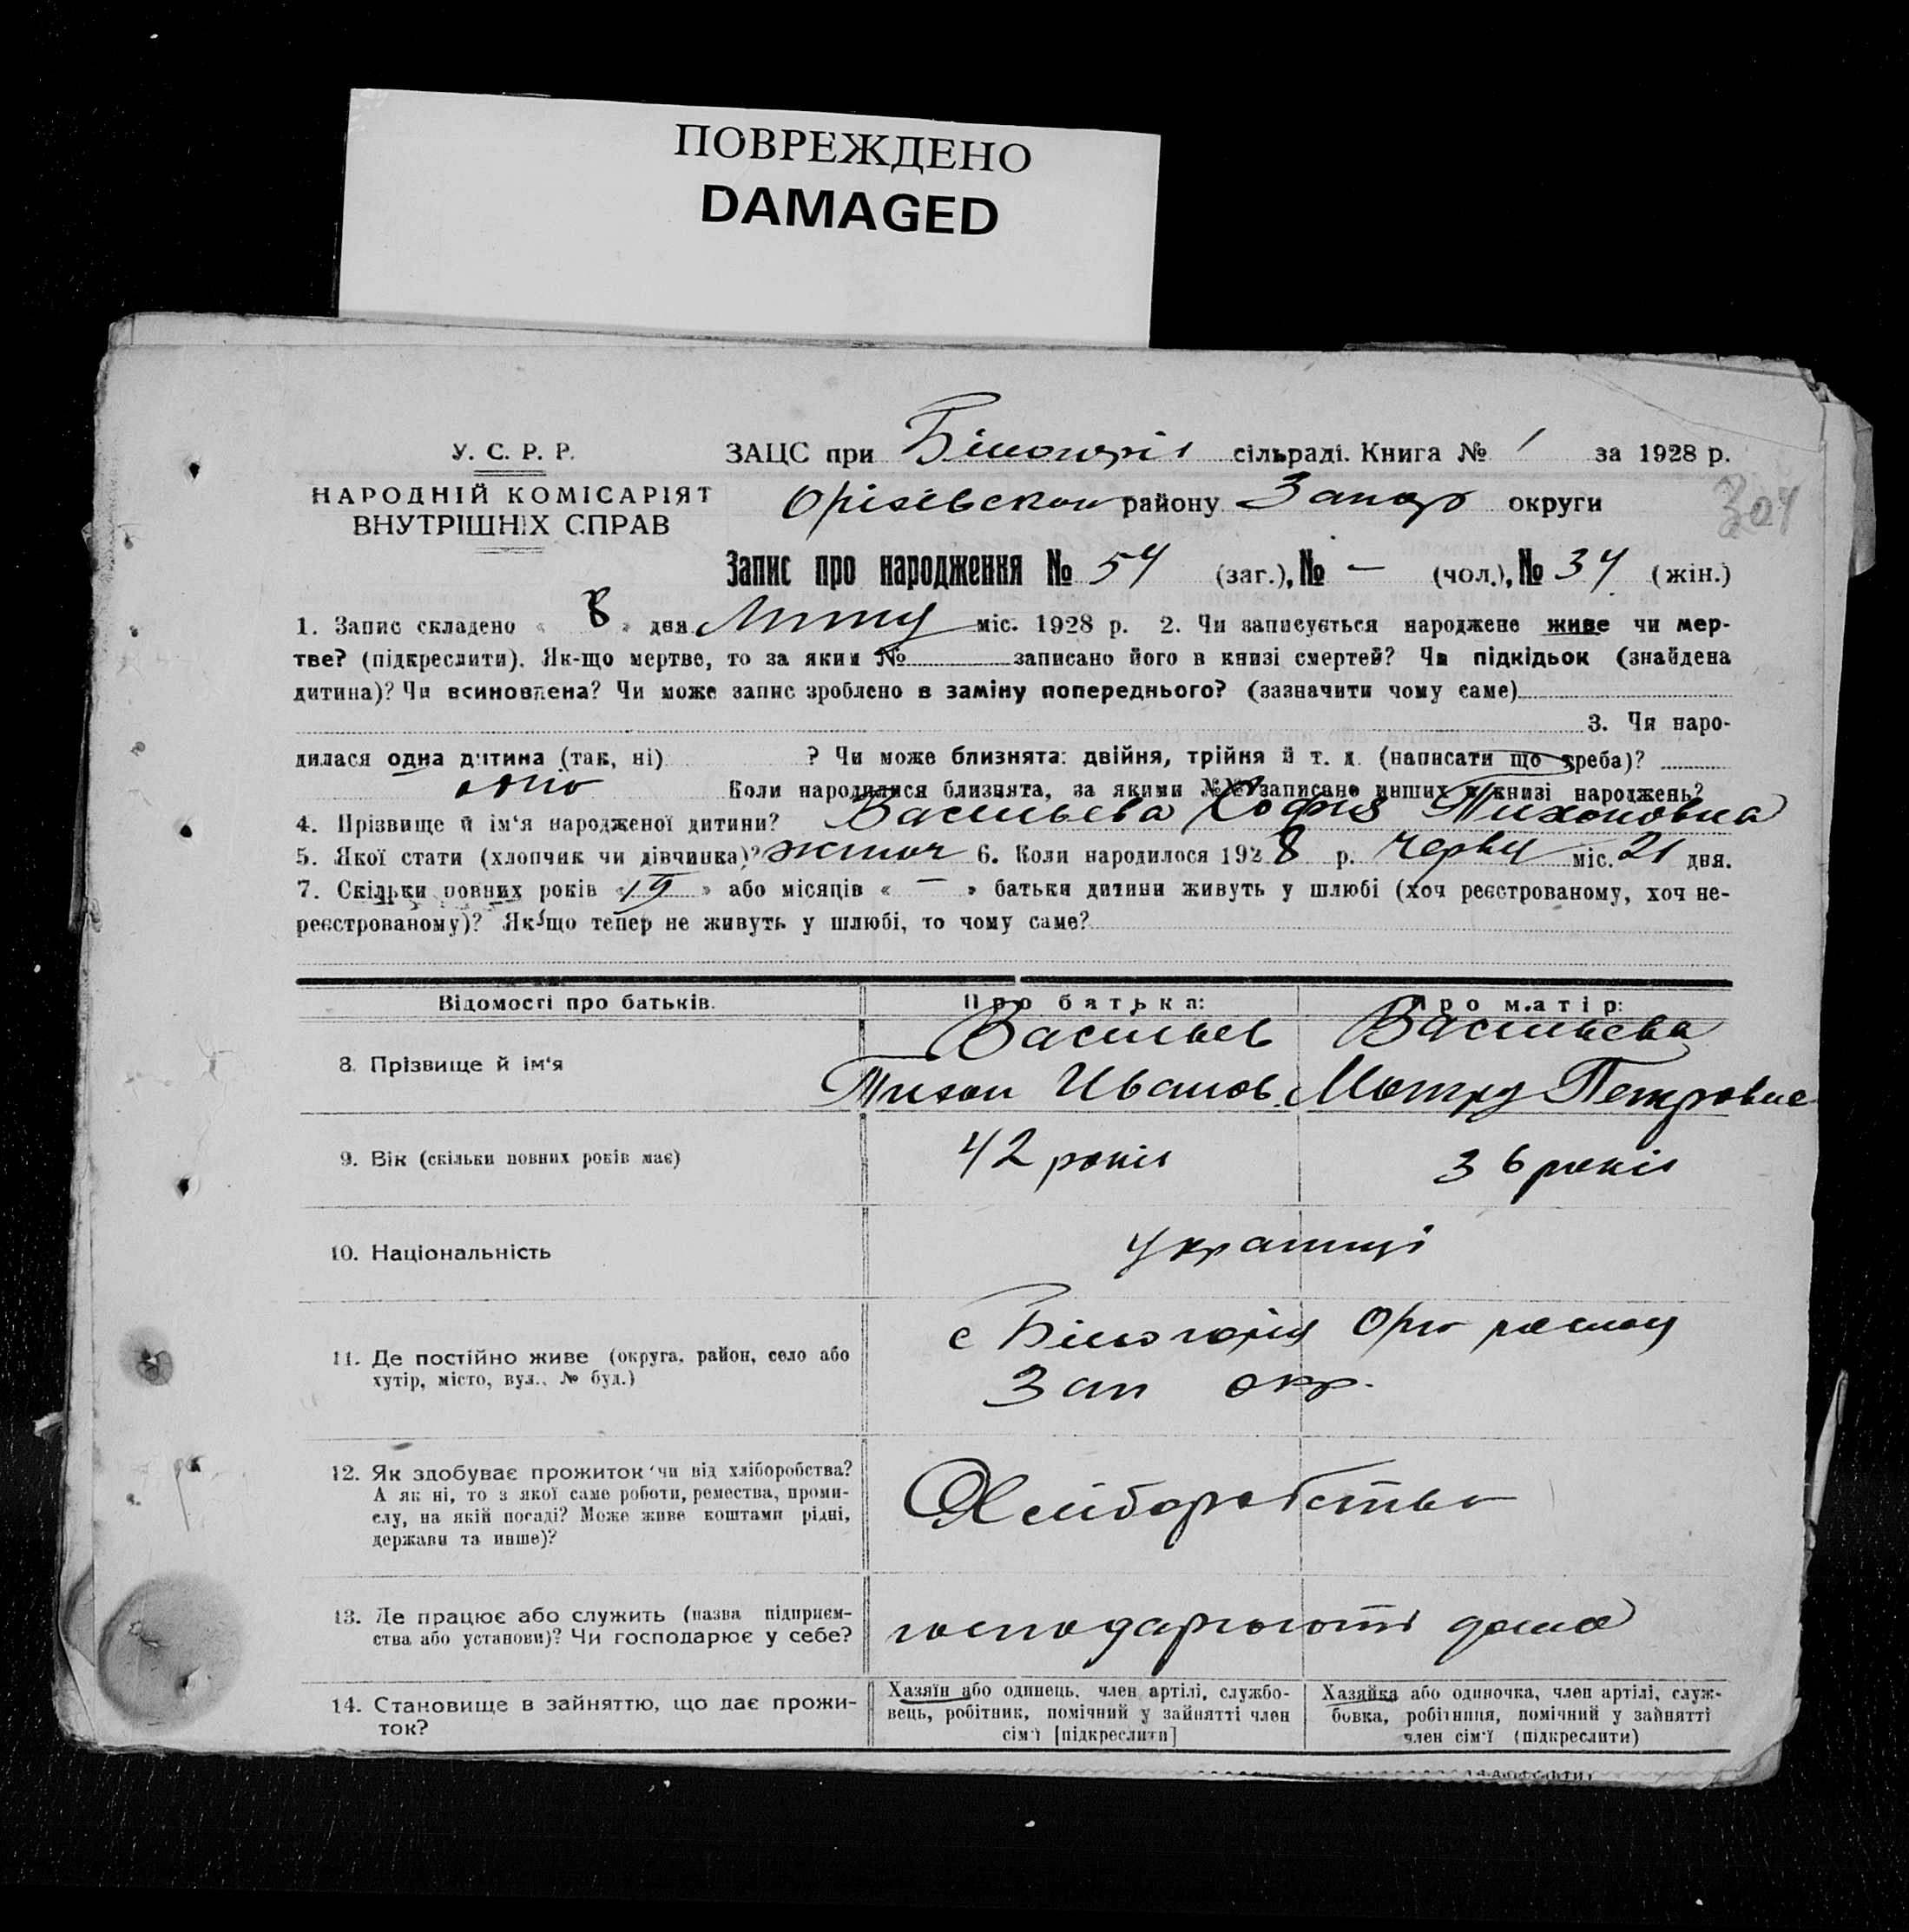 ПОВРЕЖДЕНО
DAMAGED
У. С. Р. Р.
НАРОДНІЙ КОМІСАРІЯТ
ВНУТРІШНІХ СПРАВ
ЗАЦС при сільраді. Книга № 1 за 1928 р.
району Запор округи
304
Запис про народження № 54 (заг.), № — (чол.), № 34 (жін.)
1. Запис складено « 8 » дня міс. 1928 р. 2. Чи записується народжене живе чи мер-
тве? (підкреслити). Як-що мертве, то за яким № записано його в книзі смертей? Чи підкідьок (знайдена
дитина)? Чи всиновлена? Чи може запис зроблено в заміну попереднього? (зазначити чому саме)
3. Чи наро-
дилася одна дитина (так, ні) ? Чи може близнята: двійня, трійня й т. д. (написати що треба)?
одно Коли народилися близнята, за якими №№ записано инших в книзі народжень?
4. Прізвище й ім'я народженої дитини? Васильева Софія Тихоновна
5. Якої стати (хлопчик чи дівчинка)? жіноч 6. Коли народилося 1928 р. Червн міс. 21 дня.
7. Скільки повних років « » або місяців « — » батьки дитини живуть у шлюбі (хоч реєстрованому, хоч не-
реєстрованому)? Як-що тепер не живуть у шлюбі, то чому саме?
Відомості про батьків. Про батька: Про матір:
8. Прізвище й ім'я Васильев Васильева
Тихон Иванов. Мотря Петровна
9. Вік (скільки повних років має) 42 років 36 років
10. Національність українці
11. Де постійно живе (округа, район, село або
хутір, місто, вул., № буд.)
с Білогорья Оріх району
Зап окр.
12. Як здобуває прожиток чи від хліборобства?
А як ні, то з якої саме роботи, ремества, проми-
слу, на якій посаді? Може живе коштами рідні,
держави та инше)?
Хліборобство
13. Де працює або служить (назва підприєм-
ства або установи)? Чи господарює у себе?
господарюють дома
14. Становище в зайняттю, що дає прожи-
ток?
Хазяїн або одинець, член артілі, службо-
вець, робітник, помічний у зайнятті член
сім'ї [підкреслити]
Хазяйка або одиночка, член артілі, служ-
бовка, робітниця, помічний у зайнятті
член сім'ї (підкреслити)